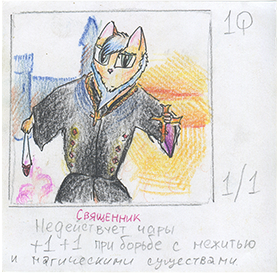 1Ф
1/1
Священник
Недействует чары
+1 +1 при борьбе с нежитью
и магическими существами